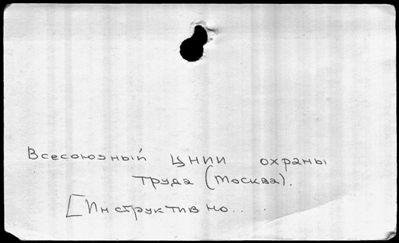 Всесоюзный ЦНИИ охраны
труда (Москва).
[Инструктивно...